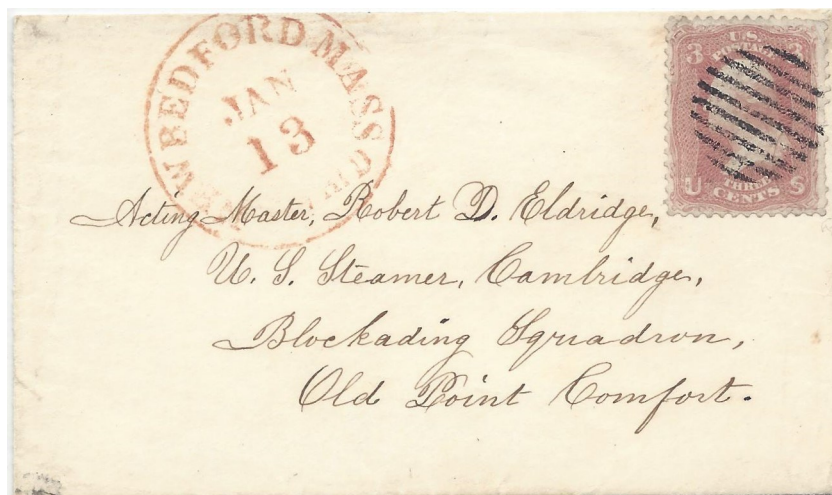 NEW BEDFORD MASS
PAID
JAN
13
U.S.
3 3
THREE
U CENTS S
Acting Master, Robert D. Eldridge,
U. S. Steamer, Cambridge,
Blockading Squadron,
Old Point Comfort.